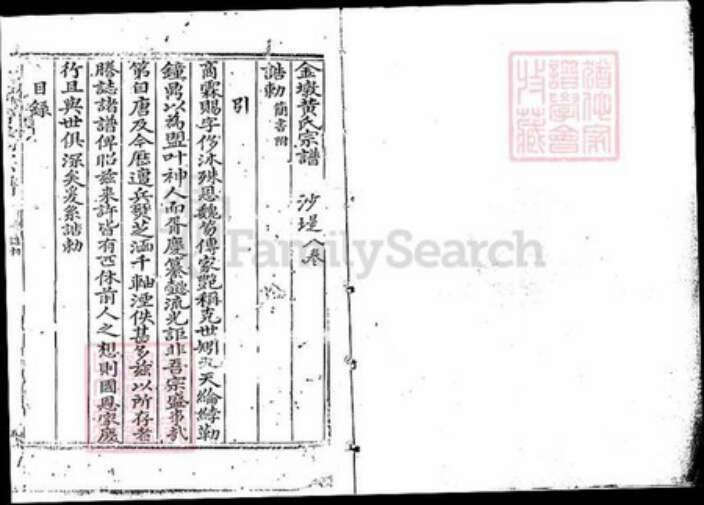 金墩黃氏宗譜 沙堤 八卷
誥勅 簡書附
引
商霖賜字侈沐殊恩魏笏傳家艷稱克世矧九天綸綍勒
鐘鼎以為盟叶神人而胥慶纂鎚流光詎非吾宗盛事哉
第自唐及今歷遭兵燹芝涵千軸湮佚甚多茲以所存者
謄誌諸譜俾昭茲來許皆有匹休前人之想則國恩家慶
行且與世俱深矣爰彙誥勅
目錄
FamilySearch